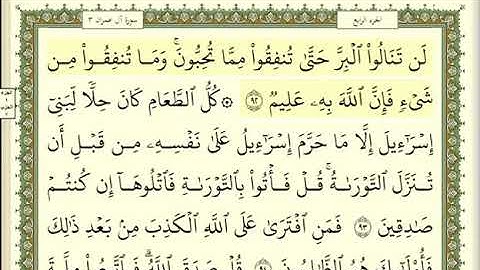 سورة آل عمران ٣
الجزء الرابع
لَن تَنَالُوا۟ ٱلْبِرَّ حَتَّىٰ تُنفِقُوا۟ مِمَّا تُحِبُّونَ ۚ وَمَا تُنفِقُوا۟ مِن
شَىْءٍ فَإِنَّ ٱللَّهَ بِهِۦ عَلِيمٌ ٩٢ ۞ كُلُّ ٱلطَّعَامِ كَانَ حِلًّا لِّبَنِىٓ
إِسْرَٰٓءِيلَ إِلَّا مَا حَرَّمَ إِسْرَٰٓءِيلُ عَلَىٰ نَفْسِهِۦ مِن قَبْلِ أَن
تُنَزَّلَ ٱلتَّوْرَىٰةُ ۗ قُلْ فَأْتُوا۟ بِٱلتَّوْرَىٰةِ فَٱتْلُوهَآ إِن كُنتُمْ
صَٰدِقِينَ ٩٣ فَمَنِ ٱفْتَرَىٰ عَلَى ٱللَّهِ ٱلْكَذِبَ مِنۢ بَعْدِ ذَٰلِكَ
فَأُو۟لَٰٓئِكَ هُمُ ٱلظَّٰلِمُونَ ٩٤ قُلْ صَدَقَ ٱللَّهُ ۗ فَٱتَّبِعُوا۟ مِلَّةَ